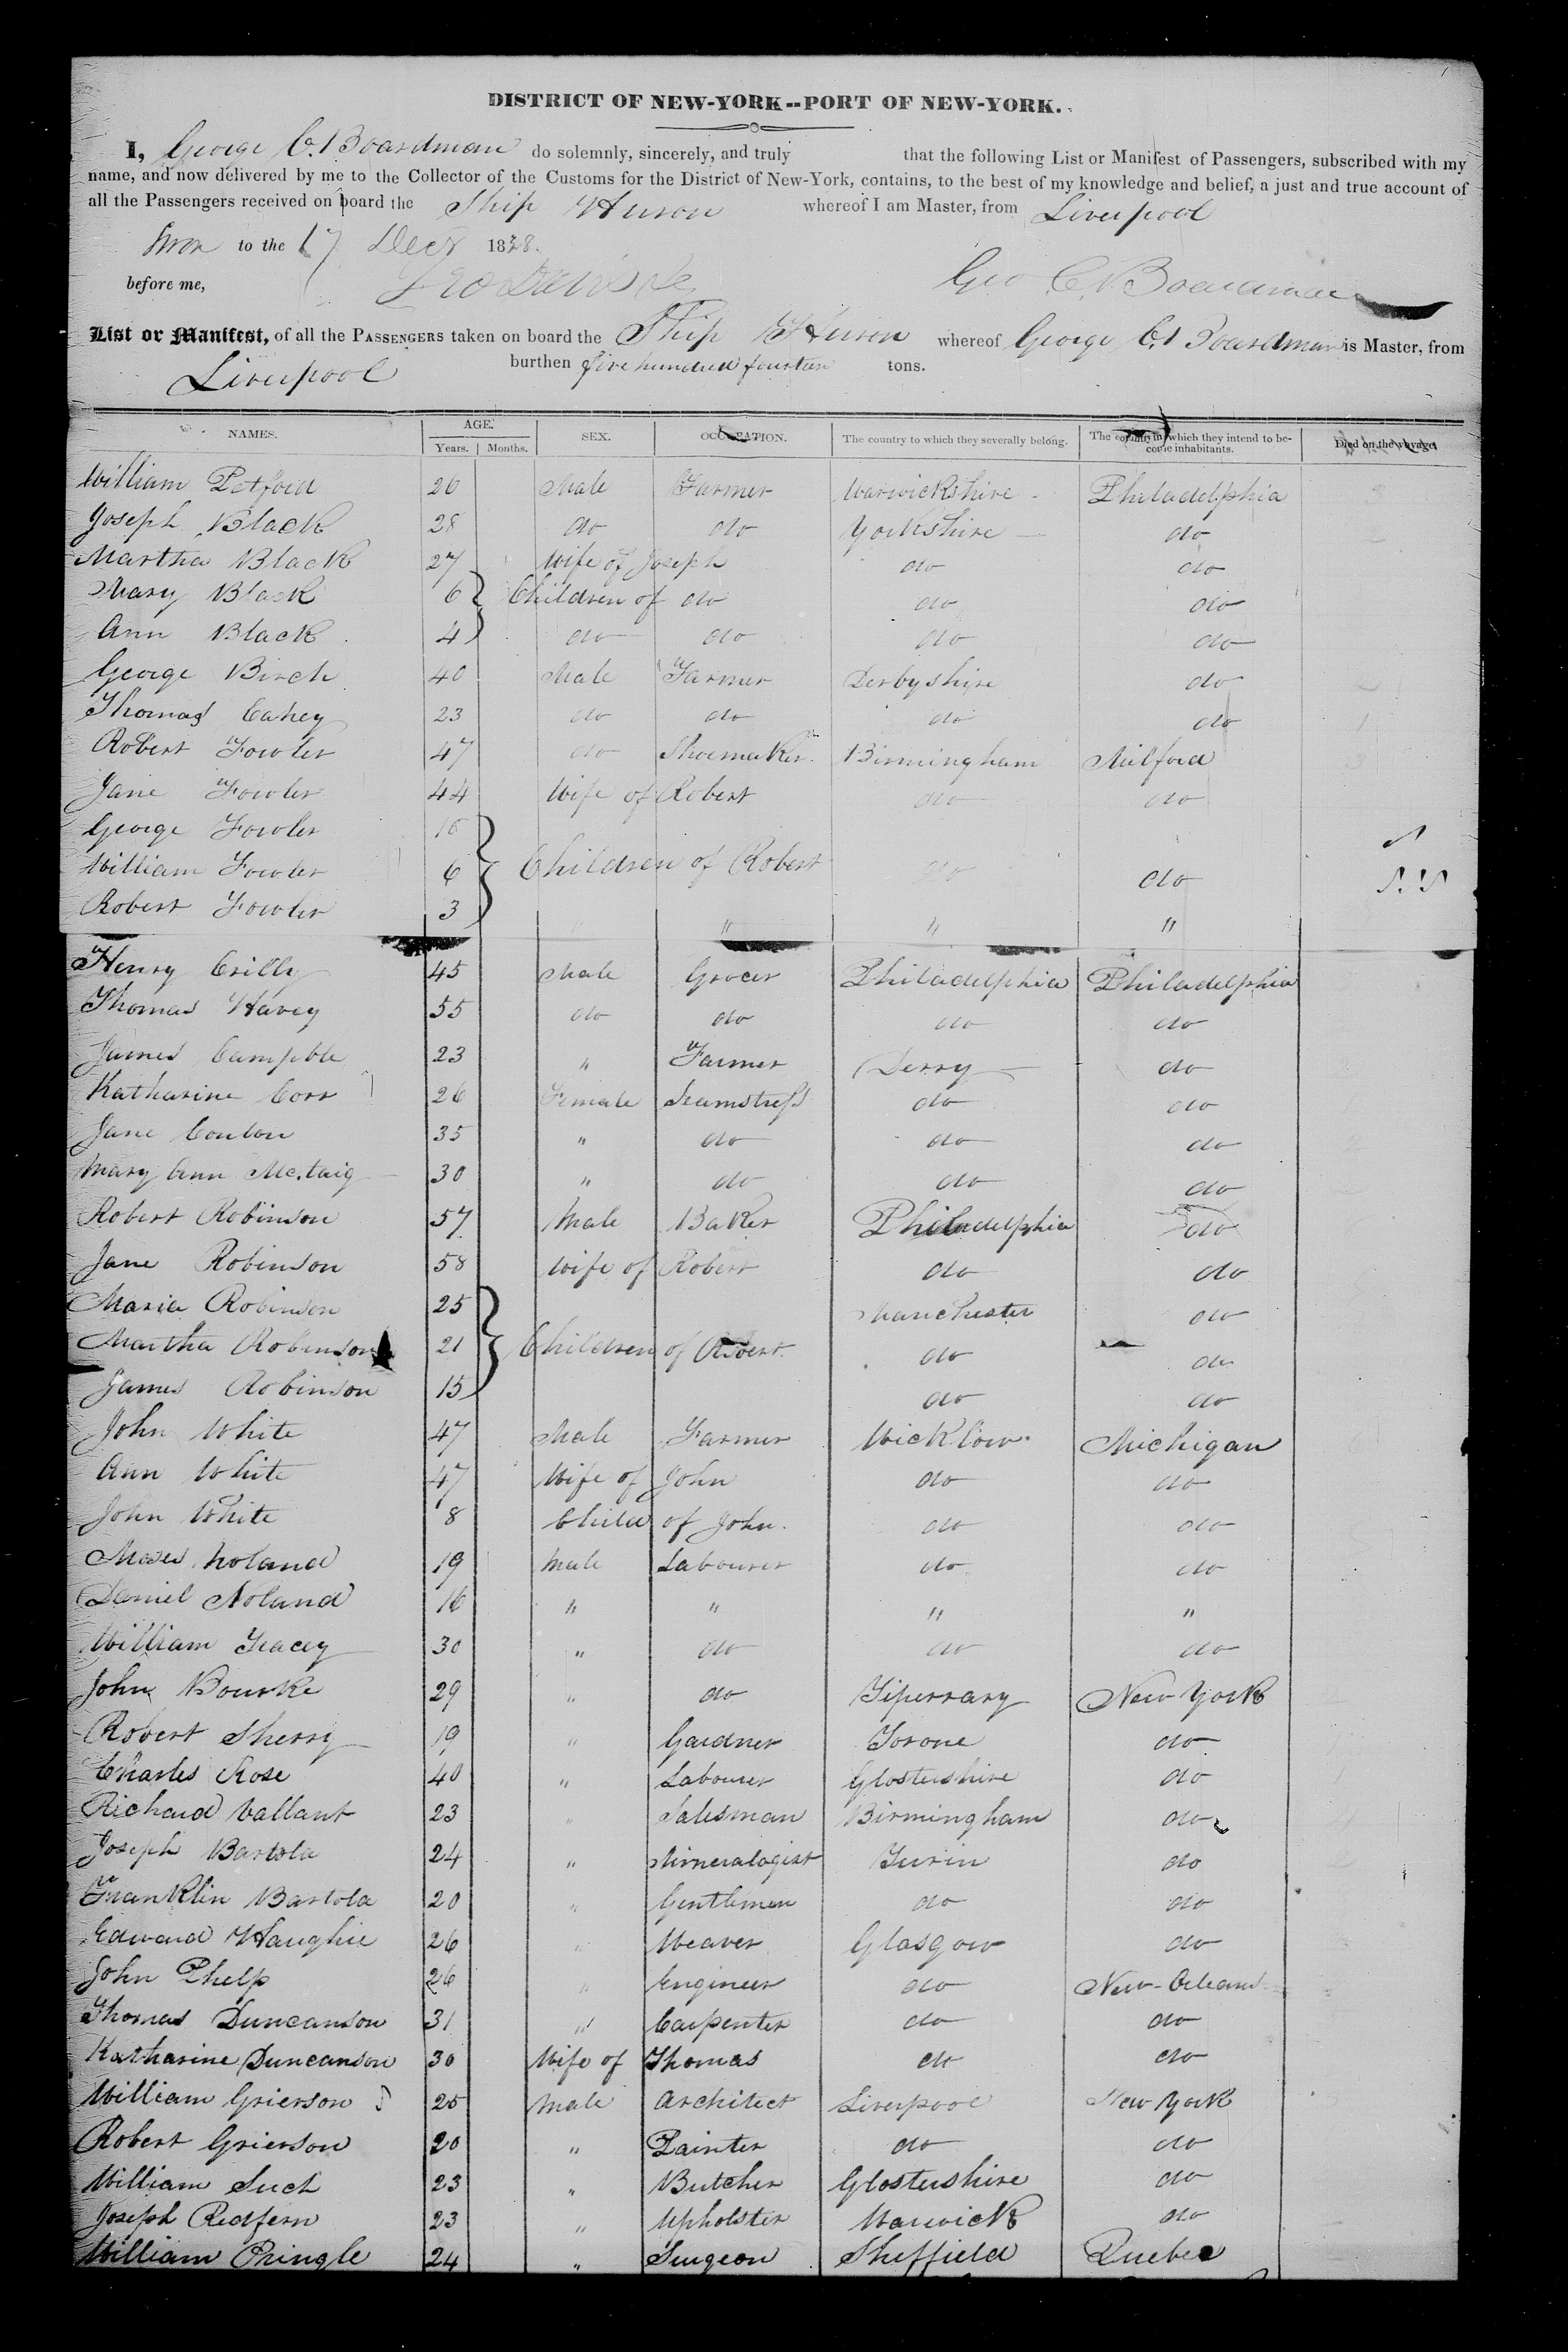 DISTRICT OF NEW-YORK--PORT OF NEW-YORK.
I, George C. Boardman do solemnly, sincerely, and truly that the following List or Manifest of Passengers, subscribed with my
name, and now delivered by me to the Collector of the Customs for the District of New-York, contains, to the best of my knowledge and belief, a just and true account of
all the Passengers received on board the Ship Huron whereof I am Master, from Liverpool
Sworn to the 17 Decr 1838.
before me, Geo C. Boardman
List or Manifest, of all the PASSENGERS taken on board the Ship Huron whereof George C. Boardman is Master, from
Liverpool burthen five hundred fourteen tons.
NAMES. AGE. Years. Months. SEX. OCCUPATION. The country to which they severally belong. The country in which they intend to become inhabitants. Died on the voyage.
William Petford 20 Male Farmer Warwickshire Philadelphia
Joseph Black 28 do do Yorkshire do
Martha Black 27 Wife of Joseph do do
Mary Black 6 Children of do do do
Ann Black 4 do do do do
George Birch 40 Male Farmer Derbyshire do
Thomas Cahey 23 do do do do
Robert Fowler 47 do Shoemaker Birmingham Milford
Jane Fowler 44 Wife of Robert do do
George Fowler
William Fowler 6 Children of Robert do do
Robert Fowler 3 " " " "
Henry Crilly 45 Male Grocer Philadelphia Philadelphia
Thomas Havey 55 do do do do
James Campble 23 " Farmer Derry do
Katharine Corr 26 Female Seamstress do do
Jane Conlon 35 " do do do
Mary Ann Mc.taig 30 " do do do
Robert Robinson 57 Male Baker Philadelphia do
Jane Robinson 58 Wife of Robert do do
Maria Robinson 25 Manchester do
Martha Robinson 21 Children of Robert do do
James Robinson 15 do do
John White 47 Male Farmer Wicklow Michigan
Ann White 47 Wife of John do do
John White 8 Child of John. do do
Moses Noland 19 Male Labourer do do
Daniel Noland 16 " " " "
William Tracey 30 " do do do
John Bourke 29 " do Tiperrary New York
Robert Sherry 19 " Gardner Torone do
Charles Rose 40 " Labourer Glostershire do
Richard Vallant 23 " Salesman Birmingham do
Joseph Bartola 24 " Mineralogist Turin do
Franklin Bartola 20 " Gentleman do do
Edward Haughie 26 " Weaver Glasgow do
John Phelp 26 " Engineer do New-Orleans
Thomas Duncanson 31 " Carpenter do do
Katharine Duncanson 30 Wife of Thomas do do
William Grierson 25 Male Architect Liverpool New York
Robert Grierson 20 " Painter do do
William Such 23 " Butcher Glostershire do
Joseph Redfern 23 " Upholster Warwick do
William Pringle 24 " Surgeon Sheffield Quebec